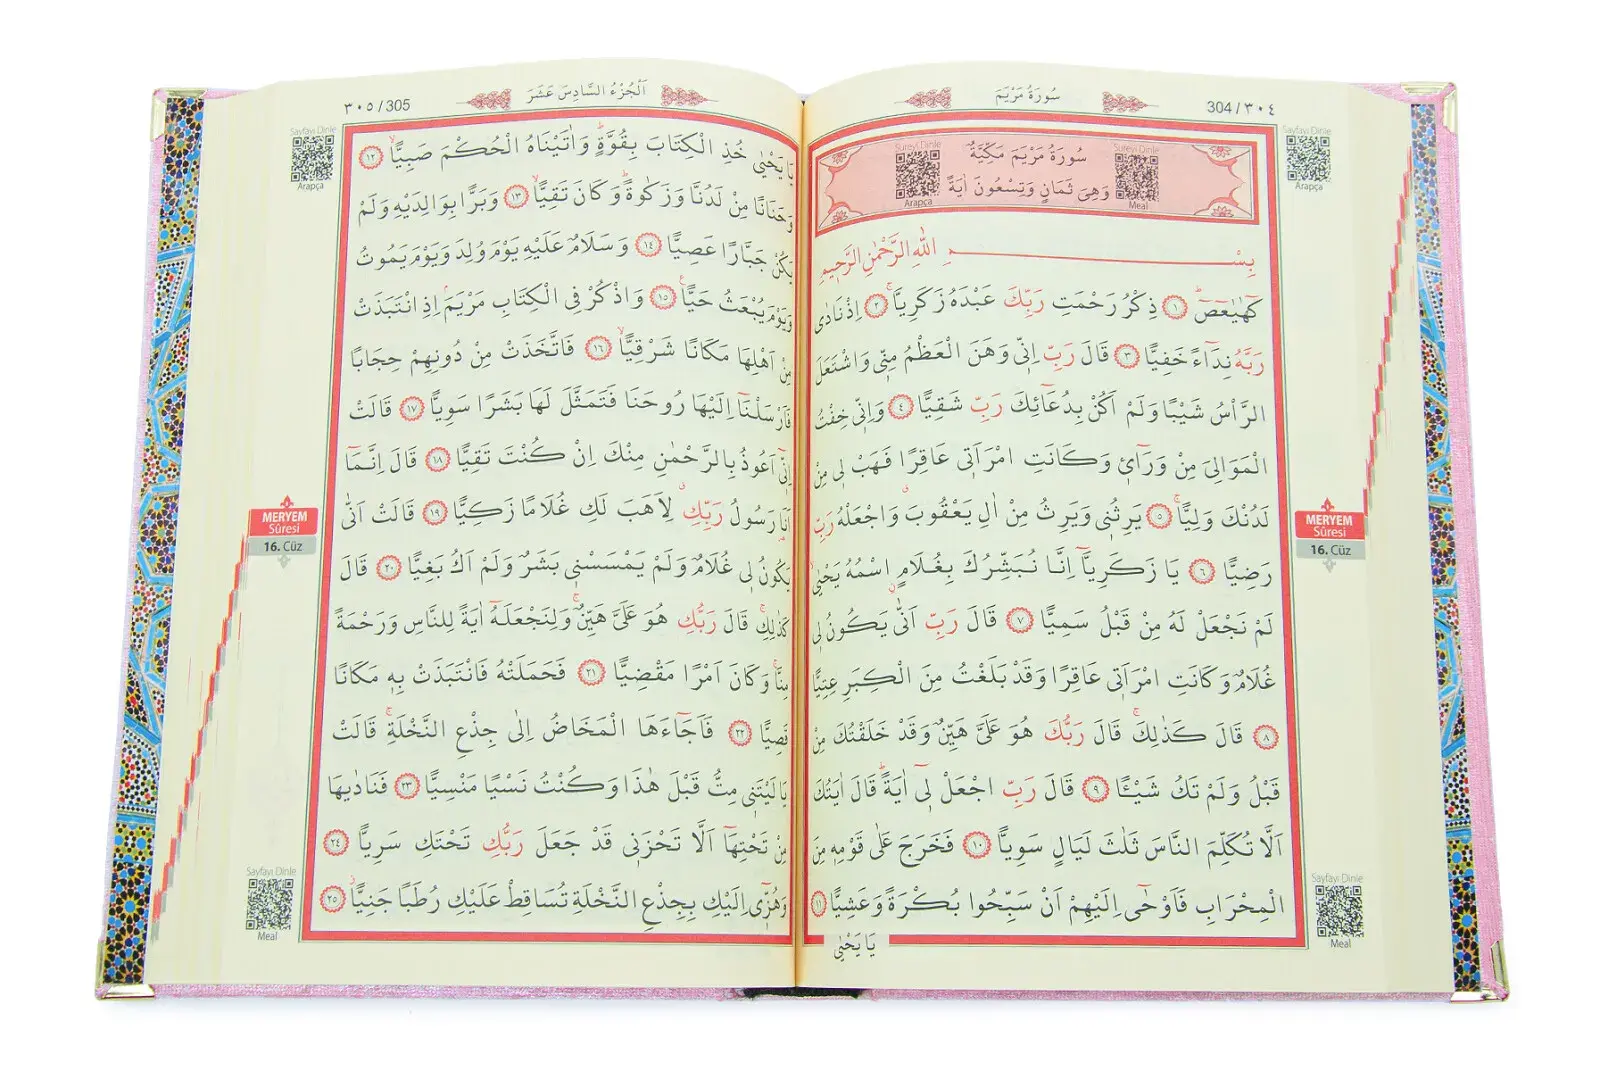 304 / ٣٠٤
سُورَةُ مَرْيَمَ
Sureyi Dinle
Meal
سُورَةُ مَرْيَمَ مَكِّيَّةٌ
وَهِىَ ثَمَانٍ وَتِسْعُونَ اٰيَةً
Sureyi Dinle
Arapça
Sayfayı Dinle
Arapça
بِسْمِ اللّٰهِ الرَّحْمٰنِ الرَّحِيمِ
كٓهٰيٰعٓصٓ ۚ ﴿١﴾ ذِكْرُ رَحْمَتِ رَبِّكَ عَبْدَهُ زَكَرِيَّا ۚ ﴿٢﴾ اِذْ نَادٰى
رَبَّهُ نِدَٓاءً خَفِيًّا ﴿٣﴾ قَالَ رَبِّ اِنّٖى وَهَنَ الْعَظْمُ مِنّٖى وَاشْتَعَلَ
الرَّاْسُ شَيْبًا وَلَمْ اَكُنْ بِدُعَٓائِكَ رَبِّ شَقِيًّا ﴿٤﴾ وَاِنّٖى خِفْتُ
الْمَوَالِىَ مِنْ وَرَٓائٖ وَكَانَتِ امْرَاَتٖى عَاقِرًا فَهَبْ لٖى مِنْ
لَدُنْكَ وَلِيًّا ۙ ﴿٥﴾ يَرِثُنٖى وَيَرِثُ مِنْ اٰلِ يَعْقُوبَ وَاجْعَلْهُ رَبِّ
رَضِيًّا ﴿٦﴾ يَا زَكَرِيَّٓا اِنَّا نُبَشِّرُكَ بِغُلَامٍ اسْمُهُ يَحْيٰى
لَمْ نَجْعَلْ لَهُ مِنْ قَبْلُ سَمِيًّا ﴿٧﴾ قَالَ رَبِّ اَنّٰى يَكُونُ لٖى
غُلَامٌ وَكَانَتِ امْرَاَتٖى عَاقِرًا وَقَدْ بَلَغْتُ مِنَ الْكِبَرِ عِتِيًّا
﴿٨﴾ قَالَ كَذٰلِكَ ۚ قَالَ رَبُّكَ هُوَ عَلَىَّ هَيِّنٌ وَقَدْ خَلَقْتُكَ مِنْ
قَبْلُ وَلَمْ تَكُ شَيْـًٔا ﴿٩﴾ قَالَ رَبِّ اجْعَلْ لٖٓى اٰيَةً ۜ قَالَ اٰيَتُكَ
اَلَّا تُكَلِّمَ النَّاسَ ثَلٰثَ لَيَالٍ سَوِيًّا ﴿١٠﴾ فَخَرَجَ عَلٰى قَوْمِهٖ مِنَ
الْمِحْرَابِ فَاَوْحٰٓى اِلَيْهِمْ اَنْ سَبِّحُوا بُكْرَةً وَعَشِيًّا ﴿١١﴾
يَا يَحْيٰى
MERYEM
Sûresi
16. Cüz
Sayfayı Dinle
Meal
٣٠٥ / 305
اَلْجُزْءُ السَّادِسَ عَشَرَ
Sayfayı Dinle
Arapça
يَا يَحْيٰى خُذِ الْكِتَابَ بِقُوَّةٍ ۜ وَاٰتَيْنَاهُ الْحُكْمَ صَبِيًّا ۙ ﴿١٢﴾
وَحَنَانًا مِنْ لَدُنَّا وَزَكٰوةً ۜ وَكَانَ تَقِيًّا ۙ ﴿١٣﴾ وَبَرًّا بِوَالِدَيْهِ وَلَمْ
يَكُنْ جَبَّارًا عَصِيًّا ﴿١٤﴾ وَسَلَامٌ عَلَيْهِ يَوْمَ وُلِدَ وَيَوْمَ يَمُوتُ
وَيَوْمَ يُبْعَثُ حَيًّا ۟ ﴿١٥﴾ وَاذْكُرْ فِى الْكِتَابِ مَرْيَمَ ۢ اِذِ انْتَبَذَتْ
مِنْ اَهْلِهَا مَكَانًا شَرْقِيًّا ۙ ﴿١٦﴾ فَاتَّخَذَتْ مِنْ دُونِهِمْ حِجَابًا
فَاَرْسَلْنَٓا اِلَيْهَا رُوحَنَا فَتَمَثَّلَ لَهَا بَشَرًا سَوِيًّا ﴿١٧﴾ قَالَتْ
اِنّٖٓى اَعُوذُ بِالرَّحْمٰنِ مِنْكَ اِنْ كُنْتَ تَقِيًّا ﴿١٨﴾ قَالَ اِنَّمَٓا
اَنَا رَسُولُ رَبِّكِ ۗ لِاَهَبَ لَكِ غُلَامًا زَكِيًّا ﴿١٩﴾ قَالَتْ اَنّٰى
يَكُونُ لٖى غُلَامٌ وَلَمْ يَمْسَسْنٖى بَشَرٌ وَلَمْ اَكُ بَغِيًّا ﴿٢٠﴾ قَالَ
كَذٰلِكِ ۚ قَالَ رَبُّكِ هُوَ عَلَىَّ هَيِّنٌ ۚ وَلِنَجْعَلَهُٓ اٰيَةً لِلنَّاسِ وَرَحْمَةً
مِنَّا ۚ وَكَانَ اَمْرًا مَقْضِيًّا ﴿٢١﴾ فَحَمَلَتْهُ فَانْتَبَذَتْ بِهٖ مَكَانًا
قَصِيًّا ﴿٢٢﴾ فَاَجَٓاءَهَا الْمَخَاضُ اِلٰى جِذْعِ النَّخْلَةِ ۚ قَالَتْ
يَا لَيْتَنٖى مِتُّ قَبْلَ هٰذَا وَكُنْتُ نَسْيًا مَنْسِيًّا ﴿٢٣﴾ فَنَادٰيهَا
مِنْ تَحْتِهَٓا اَلَّا تَحْزَنٖى قَدْ جَعَلَ رَبُّكِ تَحْتَكِ سَرِيًّا ﴿٢٤﴾
وَهُزّٖٓى اِلَيْكِ بِجِذْعِ النَّخْلَةِ تُسَاقِطْ عَلَيْكِ رُطَبًا جَنِيًّا ۘ ﴿٢٥﴾
MERYEM
Sûresi
16. Cüz
Sayfayı Dinle
Meal